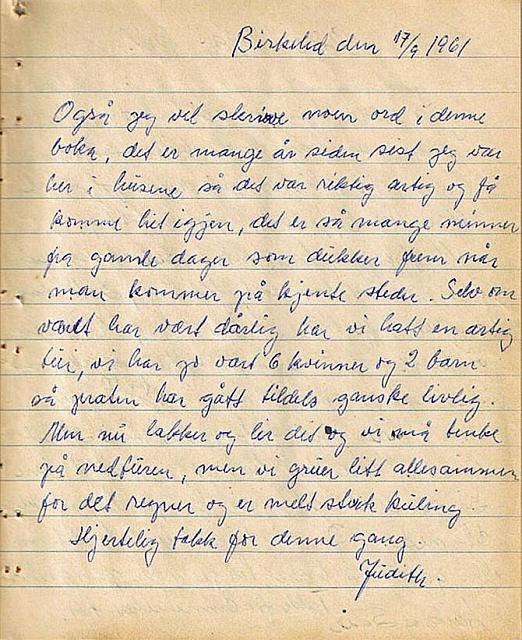 Birkelid den 17/9 1961
Også jeg vil skrive noen ord i denne
boka, det er mange år siden sist jeg var
her i husene så det var riktig artig og få
komme hit igjen, det er så mange minner
fra gamle dager som dukker frem når
man kommer på kjente steder. Selv om
været har vært dårlig har vi hatt en artig
tur, vi har jo vært 6 kvinner og 2 barn
så praten har gått tildels ganske livlig.
Men nu lakker og lir det og vi må tenke
på nedturen, men vi gruer litt allesammen
for det regner og er melt sterk kuling.
Hjertelig takk for denne gang.
Judith.